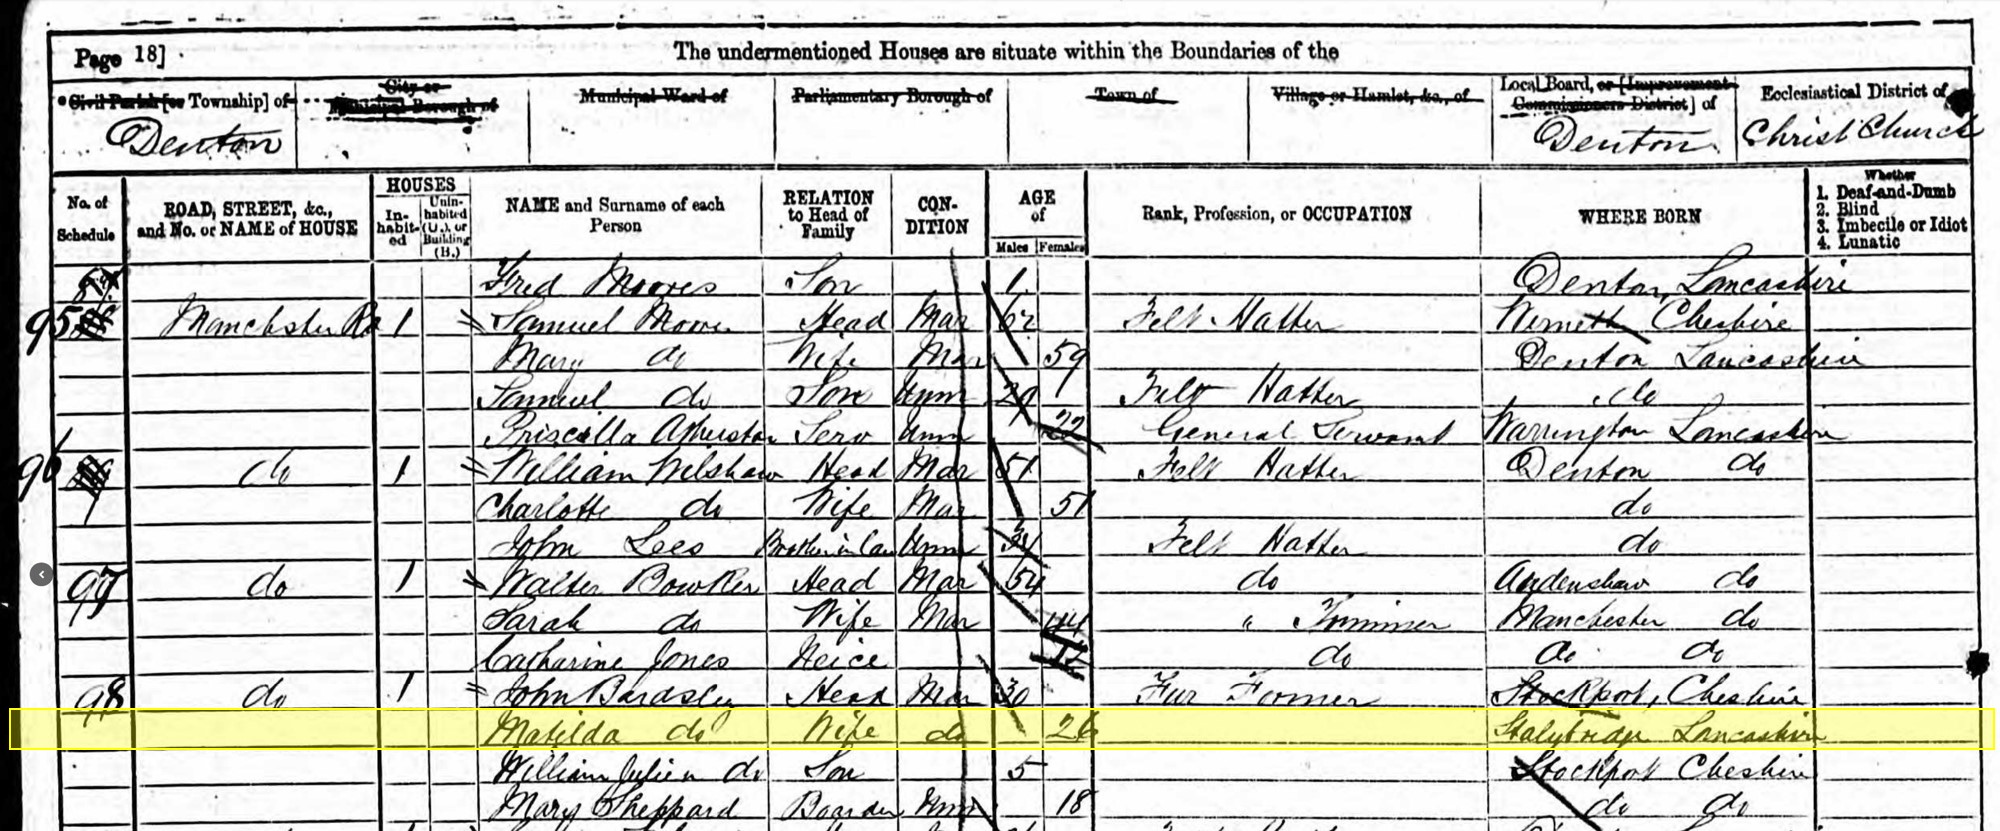 Page 18] The undermentioned Houses are situate within the Boundaries of the
Civil Parish [or Township] of City or Municipal Borough of Municipal Ward of Parliamentary Borough of Town of Village or Hamlet, &c., of Local Board, or [Improvement Commissioners District] of Ecclesiastical District of
Denton Denton Christ Church
No. of Schedule ROAD, STREET, &c., and No. or NAME of HOUSE HOUSES In-habit-ed Unin-habited (U.), or Building (B.) NAME and Surname of each Person RELATION to Head of Family CON-DITION AGE of Males Females Rank, Profession, or OCCUPATION WHERE BORN Whether 1. Deaf-and-Dumb 2. Blind 3. Imbecile or Idiot 4. Lunatic
Fred Moores Son 1 Denton, Lancashire
95 Manchester Rd 1 Samuel Moores Head Mar 62 Felt Hatter Werneth Cheshire
Mary do Wife Mar 59 Denton Lancashire
Samuel do Son Unm 29 Felt Hatter do
Priscilla Serv Unm 22 General Servant Warrington Lancashire
96 do 1 William Welshaw Head Mar 51 Felt Hatter Denton do
Charlotte do Wife Mar 51 do
John Lees Brother in law Unm 34 Felt Hatter do
97 do 1 Walter Bowker Head Mar 54 do Audenshaw do
Sarah do Wife Mar 44 " Trimmer Manchester do
Catharine Jones Neice 12 do do do
98 do 1 John Bardsley Head Mar 30 Fur Former Stockport, Cheshire
Matilda do Wife do 26 Stalybridge Lancashire
William Julien do Son 5 Stockport Cheshire
Mary Sheppard Boarder Unm 18 do do